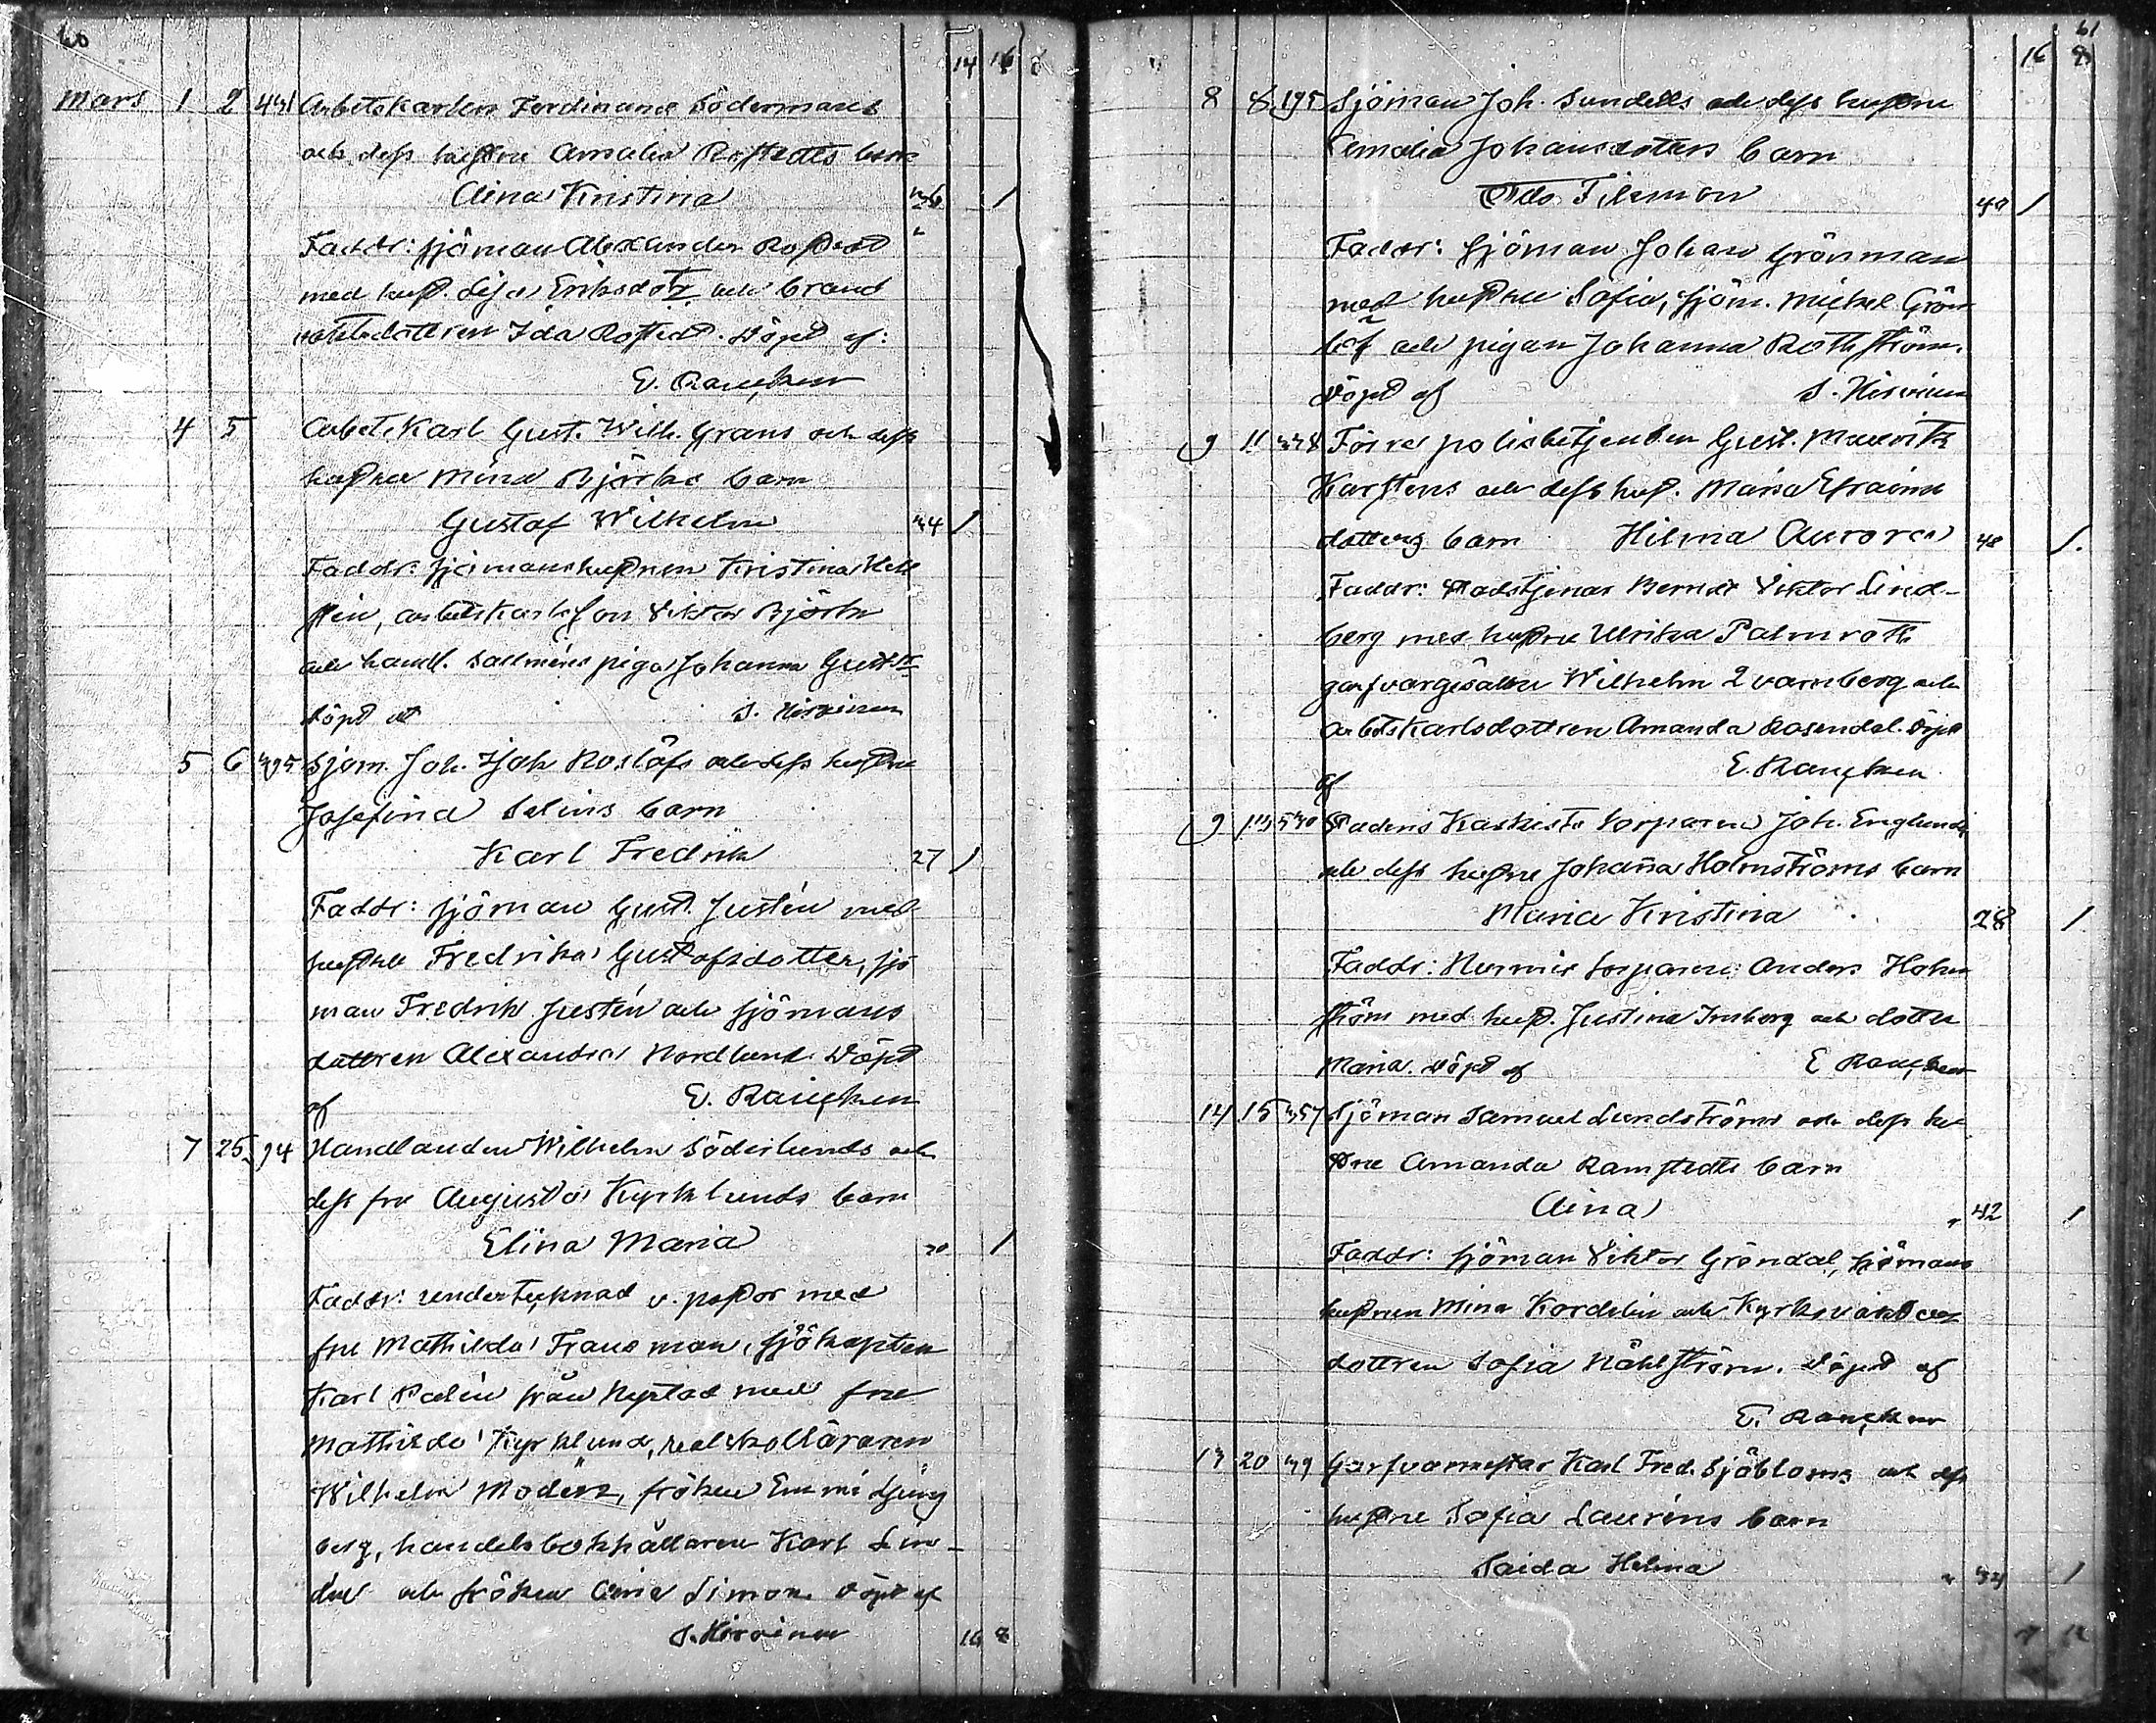 60
14 16
Mars 1 2 Arbetskarlen Ferdinand Södermans
och dess hustru Amalia Rostedts barn
Aina Kristina 36 1
Faddr: sjöman Alexander Rostedt
med hust. Eriksdotr och brand
vaktsdottren Ida Rostedt. Döpt af:
E. Rancken
4 5 Arbetskarl Gust. Wilh. Grans och dess
hustru Mina Björks barn
Gustaf Wilhelm 34 1
Faddr: sjömanshustrun Kristina Hell
sten, arbetskarlsson Viktor Björk
och handl. piga Johanna
Döpt af J. Hirvinen
5 6 395 Sjöm. Joh. Isak Roslöfs och dess hustru
Josefina Selins barn
Karl Fredrik 27 1
Faddr: sjöman Gust. Justén med
hustru Fredrika Gustafsdotter, sjö
man Fredrik Justén och sjömans
dottren Alexandra Nordlund. Döpt
af E. Rancken
7 25 94 Handlanden Wilhelm Söderlunds och
dess fru Augusta Kyrklunds barn
Elina Maria 30 1
Faddr: undertecknad v. pastor med
fru Mathilda Fransman, sjökapten
Karl från Nystad med fru
Mathilda Kyrklund, realskolläraren
Wilhelm Modén, fröken Emmi Ljung
berg, handelsbokhållaren Karl Lin-
dal och fröken Simon. Döpt af
J. Hirvinen 16 8
61
16 8
8 8 195 Sjöman Joh. Sundells och dess hustru
Amalia Johansdotters barn
Filemon 40 1
Faddr: sjöman Johan Grönman
med hustru Sofia, sjöm. Mickel Grön
löf och pigan Johanna Rothström.
Döpt af J. Hirvinen
9 11 Förre polisbetjenten Gust. Mauritz
Karstens och dess hust. Maria Efraims
dotters barn Hilma Aurora 48 1.
Faddr: stadstjenar Berndt Viktor Lind-
berg med hustru Ulrika Palmroth
garfvargesällen Wilhelm Qvarnberg och
arbetskarlsdottren Amanda Rosendal. Döpt
af E. Rancken
9 13 530 Stadens Kaskisto torparen Joh. Englunds
och dess hustru Johanna Holmströms barn
Maria Kristina 28 1.
Faddr: torparen Anders Holm
ström med hust. Justina och dotter
Maria. Döpt af E Rancken
14 15 357 Sjöman Samuel Lundströms och dess hu
stru Amanda Ramstedts barn
Aina 42 1
Faddr: sjöman Viktor Gröndal, sjömans
hustrun Mina Kordelin och Kyrkovaktars
dottren Sofia Nählström. Döpt af
E. Rancken
13 20 39 Garfvaremästar Karl Fred. Sjöbloms och dess
hustru Sofia Lauréns barn
Saida Helena 34 1